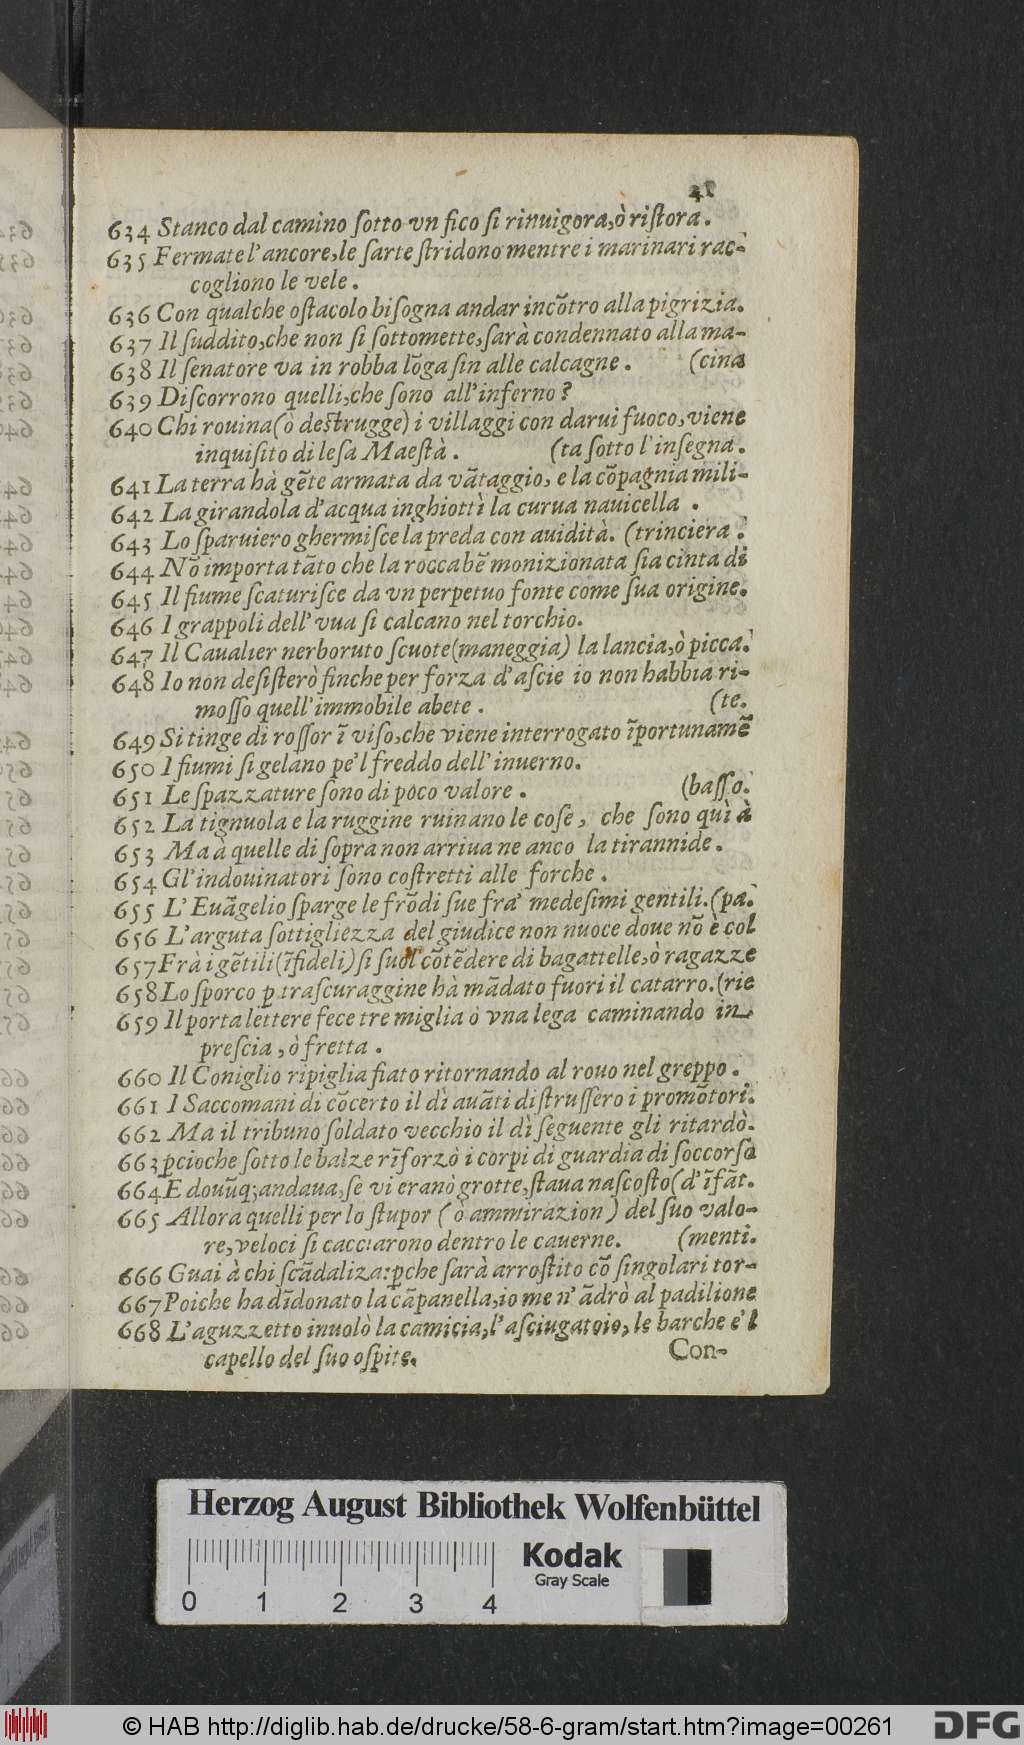 634 Stanco dal camino ſotto vn fico ſi rinuigora,ò riſtora.
635 Fermate l'ancore,le ſarte ſtridono mentre i marinari rac-
cogliono le vele.
636 Con qualche oſtacolo biſogna andar incõtro alla pigrizia.
637 Il ſuddito,che non ſi ſottomette,ſarà condennato alla ma-
638 Il ſenatore va in robba lõga ſin alle calcagne. (cina
639 Diſcorrono quelli,che ſono all'inferno?
640 Chi rouina(ò destrugge) i villaggi con darui fuoco,viene
inquiſito di leſa Maeſtà. (ta ſotto l'inſegna.
641 La terra hà gẽte armata da vãtaggio, e la cõpagnia mili-
642 La girandola d'acqua inghiottì la curua nauicella.
643 Lo ſparuiero ghermiſce la preda con auidità. (trinciera.
644 Nõ importa tãto che la rocca bẽ monizionata ſia cinta di
645 Il fiume ſcaturiſce da vn perpetuo fonte come ſua origine.
646 I grappoli dell'vua ſi calcano nel torchio.
647 Il Caualier nerboruto ſcuote(maneggia) la lancia,ò picca.
648 Io non deſiſterò finche per forza d'aſcie io non habbia ri-
moſſo quell'immobile abete. (te.
649 Si tinge di roſſor ĩ viſo,che viene interrogato ĩportunamẽ
650 I fiumi ſi gelano pe'l freddo dell'inuerno.
651 Le ſpazzature ſono di poco valore. (baſſo.
652 La tignuola e la ruggine ruinano le coſe, che ſono quì à
653 Ma à quelle di ſopra non arriua ne anco la tirannide.
654 Gl'indouinatori ſono coſtretti alle forche.
655 L'Euãgelio ſparge le frõdi ſue fra' medeſimi gentili.(pa.
656 L'arguta ſottigliezza del giudice non nuoce doue nõ è col
657 Frà i gẽtili(ĩfideli) ſi ſuol cõtẽdere di bagattelle,ò ragazze
658 Lo ſporco p traſcuraggine hà mãdato fuori il catarro.(rie
659 Il porta lettere fece tre miglia ò vna lega caminando in
preſcia, ò fretta.
660 Il Coniglio ripiglia fiato ritornando al rouo nel greppo.
661 I Saccomani di cõcerto il dì auãti diſtruſſero i promõtori.
662 Ma il tribuno ſoldato vecchio il dì ſeguente gli ritardò.
663 pcioche ſotto le balze rĩforzò i corpi di guardia di ſoccorſo
664 E douũq; andaua,ſe vi eranò grotte,ſtaua naſcoſto(d'ĩfãt.
665 Allora quelli per lo ſtupor (ò ammirazion) del ſuo valo-
re,veloci ſi cacciarono dentro le cauerne. (menti.
666 Guai à chi ſcãdaliza:pche ſarà arroſtito cõ ſingolari tor-
667 Poiche ha dĩdonato la cãpanella,io me n'ãdrò al padilione
668 L'aguzzetto inuolò la camicia,l'aſciugatoio,le barche e'l
capello del ſuo oſpite.
Con-
Herzog August Bibliothek Wolfenbüttel
Kodak
Gray Scale
0 1 2 3 4
© HAB http://diglib.hab.de/drucke/58-6-gram/start.htm?image=00261
DFG